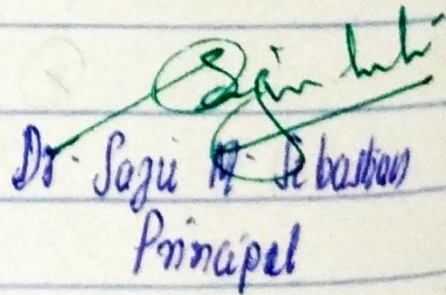 Dr. Saju M. Sebastian
Principal